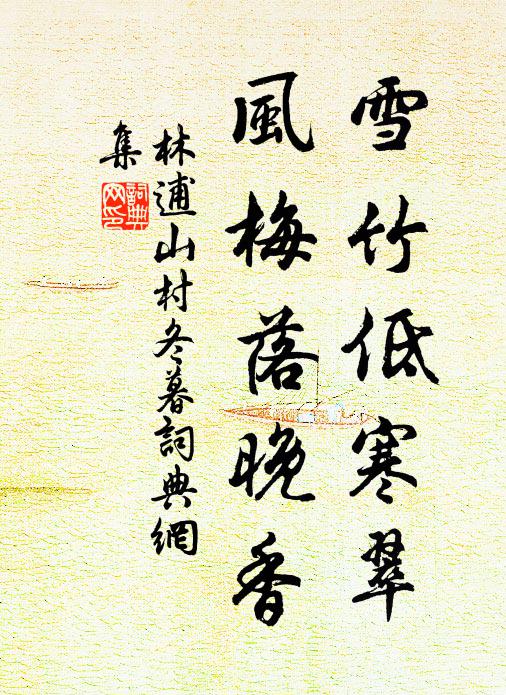 雪竹低寒翠
風梅落晚香
林逋山村冬暮詞典網
集
詞典
网印